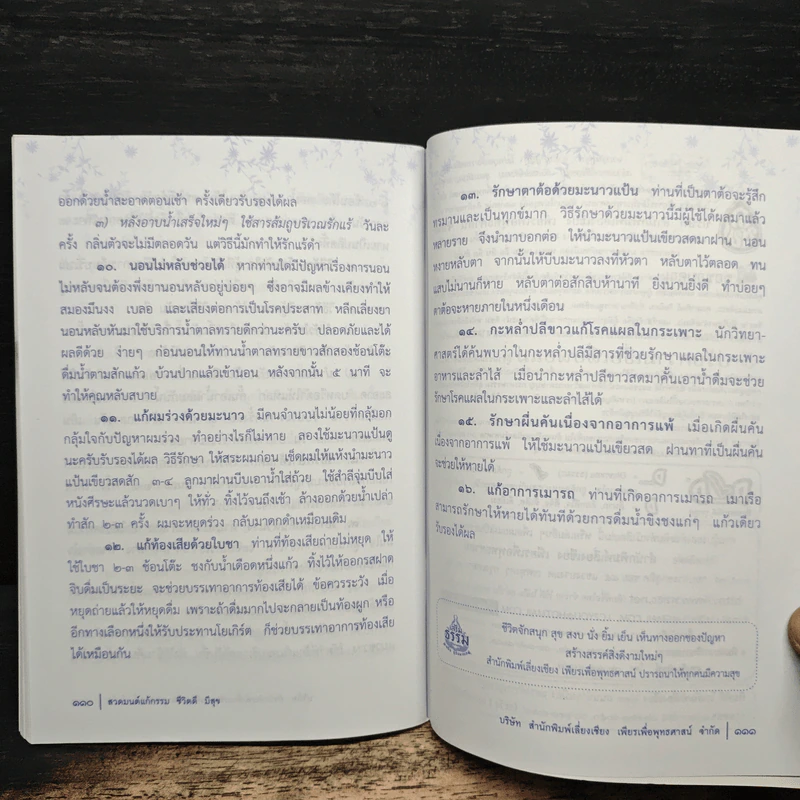 ออกด้วยน้ำสะอาดตอนเช้า ครั้งเดียวรับรองได้ผล
๓) หลังอาบน้ำเสร็จใหม่ๆ ใช้สารส้มถูบริเวณรักแร้ วันละ
ครั้ง กลิ่นตัวจะไม่มีตลอดวัน แต่วิธีนี้มักทำให้รักแร้ดำ
๑๐. นอนไม่หลับช่วยได้ หากท่านใดมีปัญหาเรื่องการนอน
ไม่หลับจนต้องพึ่งยานอนหลับอยู่บ่อยๆ ซึ่งอาจมีผลข้างเคียงทำให้
สมองมึนงง เบลอ และเสี่ยงต่อการเป็นโรคประสาท หลีกเลี่ยงยา
นอนหลับหันมาใช้บริการน้ำตาลทรายดีกว่านะครับ ปลอดภัยและได้
ผลดีด้วย ง่ายๆ ก่อนนอนให้ทานน้ำตาลทรายขาวสักสองช้อนโต๊ะ
ดื่มน้ำตามสักแก้ว บ้วนปากแล้วเข้านอน หลังจากนั้น ๕ นาที จะ
ทำให้คุณหลับสบาย
๑๑. แก้ผมร่วงด้วยมะนาว มีคนจำนวนไม่น้อยที่กลุ้มอก
กลุ้มใจกับปัญหาผมร่วง ทำอย่างไรก็ไม่หาย ลองใช้มะนาวแป้นดู
นะครับรับรองได้ผล วิธีรักษา ให้สระผมก่อน เช็ดผมให้แห้งนำมะนาว
แป้นเขียวสดสัก ๓-๔ ลูกมาผ่านบีบเอาน้ำใส่ถ้วย ใช้สำลีจุ่มบีบใส่
หนังศีรษะแล้วนวดเบาๆ ให้ทั่ว ทิ้งไว้จนถึงเช้า ล้างออกด้วยน้ำเปล่า
ทำสัก ๒-๓ ครั้ง ผมจะหยุดร่วง กลับมาดกดำเหมือนเดิม
๑๒. แก้ท้องเสียด้วยใบชา ท่านที่ท้องเสียถ่ายไม่หยุด ให้
ใช้ใบชา ๒-๓ ช้อนโต๊ะ ชงกับน้ำเดือดหนึ่งแก้ว ทิ้งไว้ให้ออกรสฝาด
จิบดื่มเป็นระยะ จะช่วยบรรเทาอาการท้องเสียได้ ข้อควรระวัง เมื่อ
หยุดถ่ายแล้วให้หยุดดื่ม เพราะถ้าดื่มมากไปจะกลายเป็นท้องผูก หรือ
อีกทางเลือกหนึ่งให้รับประทานโยเกิร์ต ก็ช่วยบรรเทาอาการท้องเสีย
ได้เหมือนกัน
๑๑๐ | สวดมนต์แก้กรรม ชีวิตดี มีสุข
๑๓. รักษาตาต้อด้วยมะนาวแป้น ท่านที่เป็นตาต้อจะรู้สึก
ทรมานและเป็นทุกข์มาก วิธีรักษาด้วยมะนาวนี้มีผู้ใช้ได้ผลมาแล้ว
หลายราย จึงนำมาบอกต่อ ให้นำมะนาวแป้นเขียวสดมาผ่าน นอน
หงายหลับตา จากนั้นให้บีบมะนาวลงที่หัวตา หลับตาไว้ตลอด ทน
แสบไม่นานก็หาย หลับตาต่อสักสิบห้านาที ยิ่งนานยิ่งดี ทำบ่อยๆ
ตาต้อจะหายภายในหนึ่งเดือน
๑๔. กะหล่ำปลีขาวแก้โรคแผลในกระเพาะ นักวิทยา-
ศาสตร์ได้ค้นพบว่าในกะหล่ำปลีมีสารที่ช่วยรักษาแผลในกระเพาะ
อาหารและลำไส้ เมื่อนำกะหล่ำปลีขาวสดมาคั้นเอาน้ำดื่มจะช่วย
รักษาโรคแผลในกระเพาะและลำไส้ได้
๑๕. รักษาผื่นคันเนื่องจากอาการแพ้ เมื่อเกิดผื่นคัน
เนื่องจากอาการแพ้ ให้ใช้มะนาวแป้นเขียวสด ฝานทาที่เป็นผื่นคัน
จะช่วยให้หายได้
๑๖. แก้อาการเมารถ ท่านที่เกิดอาการเมารถ เมาเรือ
สามารถรักษาให้หายได้ทันทีด้วยการดื่มน้ำขิงชงแก่ๆ แก้วเดียว
รับรองได้ผล
ธรรม
ชีวิตจักสนุก สุข สงบ นั่ง ยิ้ม เย็น เห็นทางออกของปัญหา
สร้างสรรค์สิ่งดีงามใหม่ๆ
สำนักพิมพ์เลี่ยงเชียง เพียรเพื่อพุทธศาสน์ ปรารถนาให้ทุกคนมีความสุข
บริษัท สำนักพิมพ์เลี่ยงเชียง เพียรเพื่อพุทธศาสน์ จำกัด | ๑๑๑